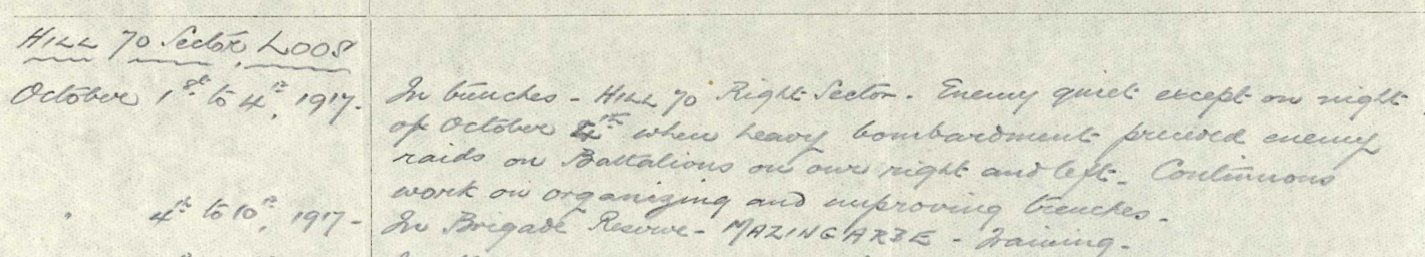 HILL 70 Sector, LOOS
October 1st to 4th, 1917. In trenches - HILL 70 Right Sector. Enemy quiet except on night
of October 4th when heavy bombardment preceded enemy
raids on Battalions on our right and left. Continuous
work on organizing and improving trenches.
" 4th to 10th, 1917 - In Brigade Reserve - MAZINGARBE - Training.